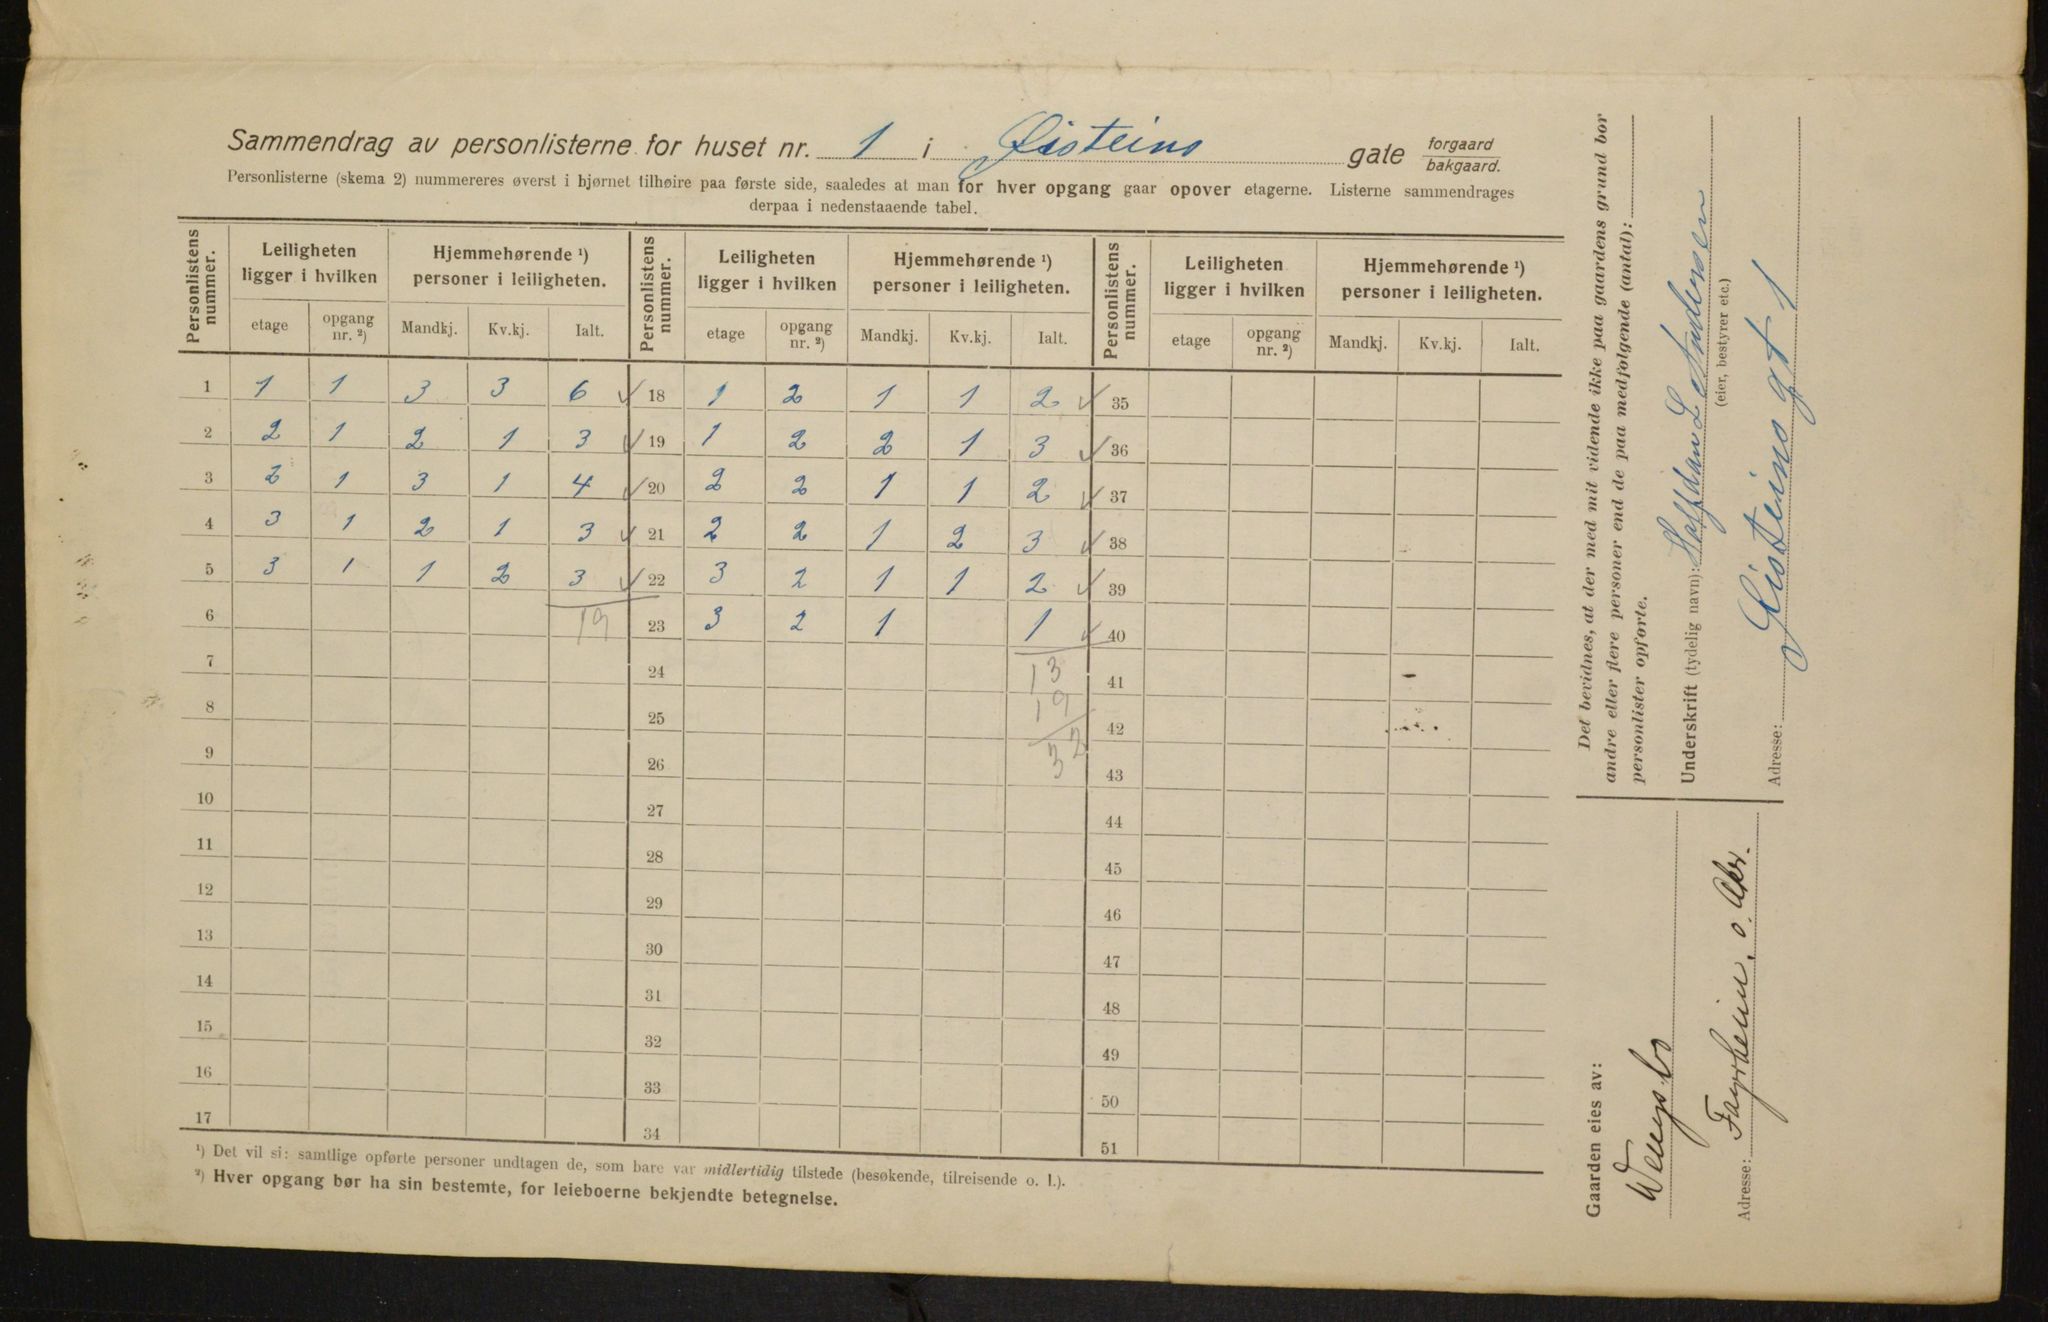 Sammendrag av personlisterne for huset nr. 1 i Øisteins gate forgaard bakgaard.
Personlisterne (skema 2) nummereres øverst i hjørnet tilhøire paa første side, saaledes at man for hver opgang gaar opover etagerne. Listerne sammendrages
derpaa i nedenstaaende tabel.
Personlistens nummer. Leiligheten ligger i hvilken Hjemmehørende ¹) personer i leiligheten. Personlistens nummer. Leiligheten ligger i hvilken Hjemmehørende ¹) personer i leiligheten. Personlistens nummer. Leiligheten ligger i hvilken Hjemmehørende ¹) personer i leiligheten.
etage opgang nr. ²) Mandkj. Kv.kj. Ialt. etage opgang nr. ²) Mandkj. Kv.kj. Ialt. etage opgang nr. ²) Mandkj. Kv.kj. Ialt.
1 1 1 3 3 6 ✓ 18 1 2 1 1 2 ✓ 35
2 2 1 2 1 3 ✓ 19 1 2 2 1 3 ✓ 36
3 2 1 3 1 4 ✓ 20 2 2 1 1 2 ✓ 37
4 3 1 2 1 3 ✓ 21 2 2 1 2 3 ✓ 38
5 3 1 1 2 3 ✓ 22 3 2 1 1 2 ✓ 39
6 19 23 3 2 1 1 ✓ 40
7 24 13 41
8 25 19 42
9 26 32 43
10 27 44
11 28 45
12 29 46
13 30 47
14 31 48
15 32 49
16 33 50
17 34 51
¹) Det vil si: samtlige opførte personer undtagen de, som bare var midlertidig tilstede (besøkende, tilreisende o. l.).
²) Hver opgang bør ha sin bestemte, for leieboerne bekjendte betegnelse.
Det bevidnes, at der med mit vidende ikke paa gaardens grund bor
andre eller flere personer end de paa medfølgende (antal):
personlister opførte.
Underskrift (tydelig navn): Halfdan L Andersen
(eier, bestyrer etc.)
Adresse: Øisteins gt 1
Gaarden eies av:
Adresse: o. Aker.